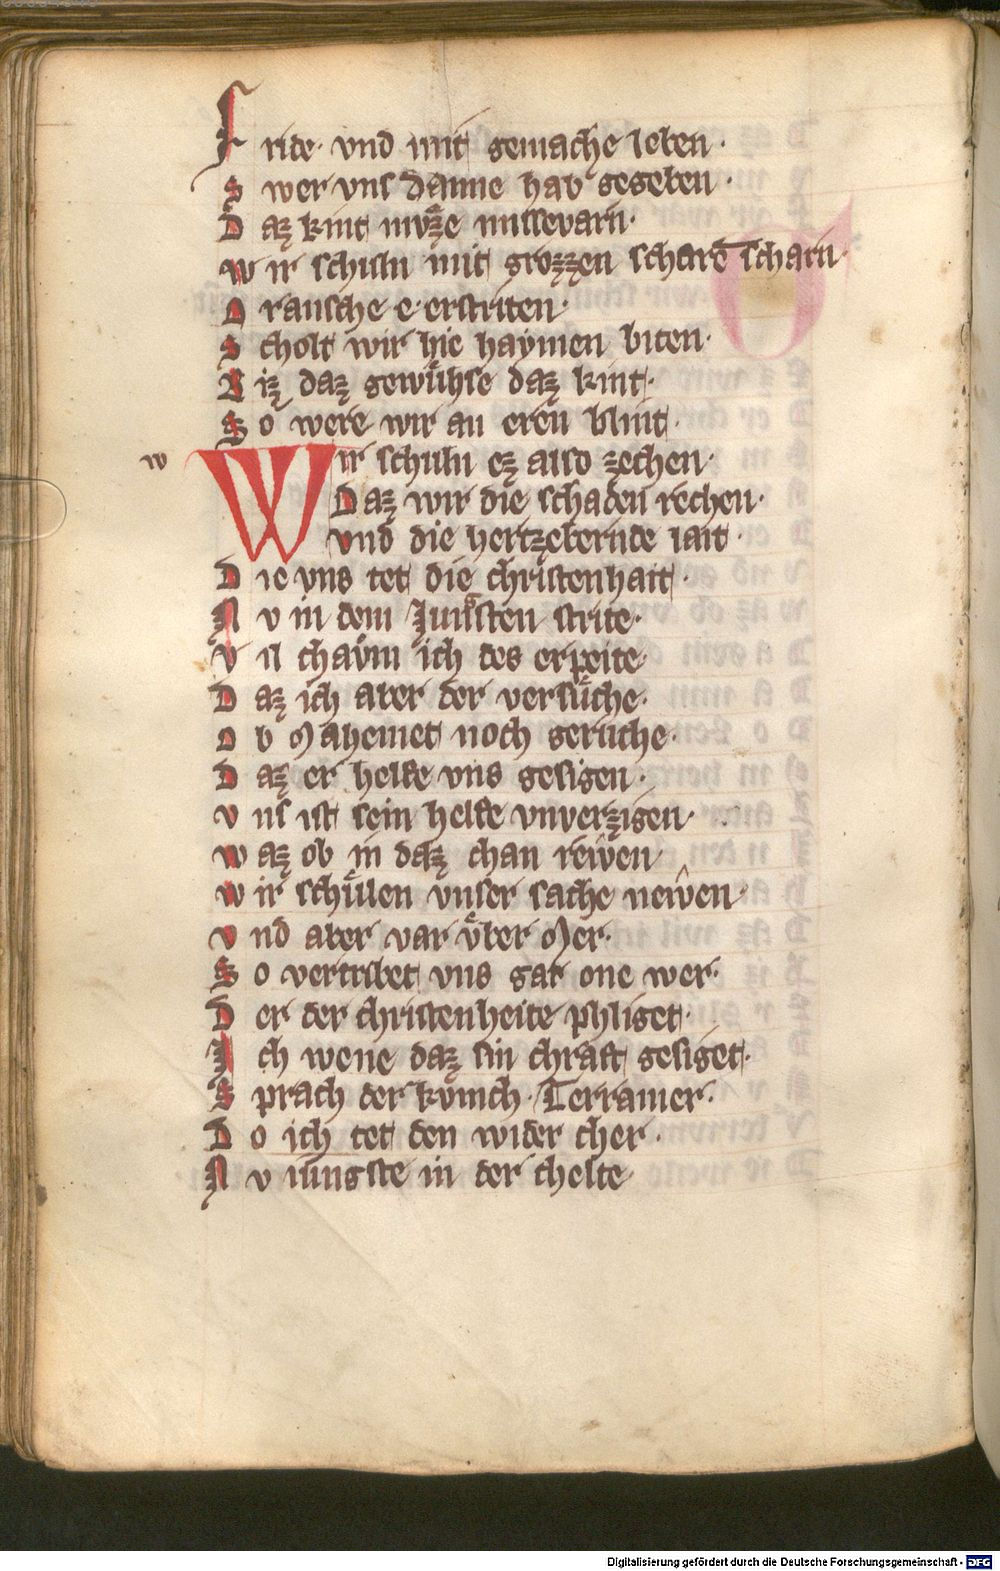 F ride · vnd mit gemache leben ·
S wer vns danne hab gegeben ·
D az kint mvͤze missevarn ·
W ir schuln mit grozzen scharē scharn ·
O ransche e · erstriten ·
S cholt wir hie haymen biten ·
B iz daz gewuͤhse daz kint ·
S o were wir an eren blint ·
w Wir schuln ez also zechen ·
D az wir die schaden rechen ·
vnd die hertzebernde iait ·
D ie vns tet die christenhait ·
N v in dem Jungsten strite ·
V n chavm ich des erpeite
D az ich aber der versuͤche ·
O b Mahemet noch geruche ·
D az er helfe vns gesigen ·
V ns ist sein helfe vnverzigen ·
W az ob in daz chan rewen
W ir schuͤllen vnser sache newen ·
V nd aber var vͤber Mer ·
S o vertribet vns gar one wer ·
D er der christenheite phliget ·
I ch wene daz sin chraft gesiget ·
S prach der kvnich · Terramer ·
D o ich tet den wider cher ·
N v iungste in der chelte
Digitalisierung gefördert durch die Deutsche Forschungsgemeinschaft - DFG